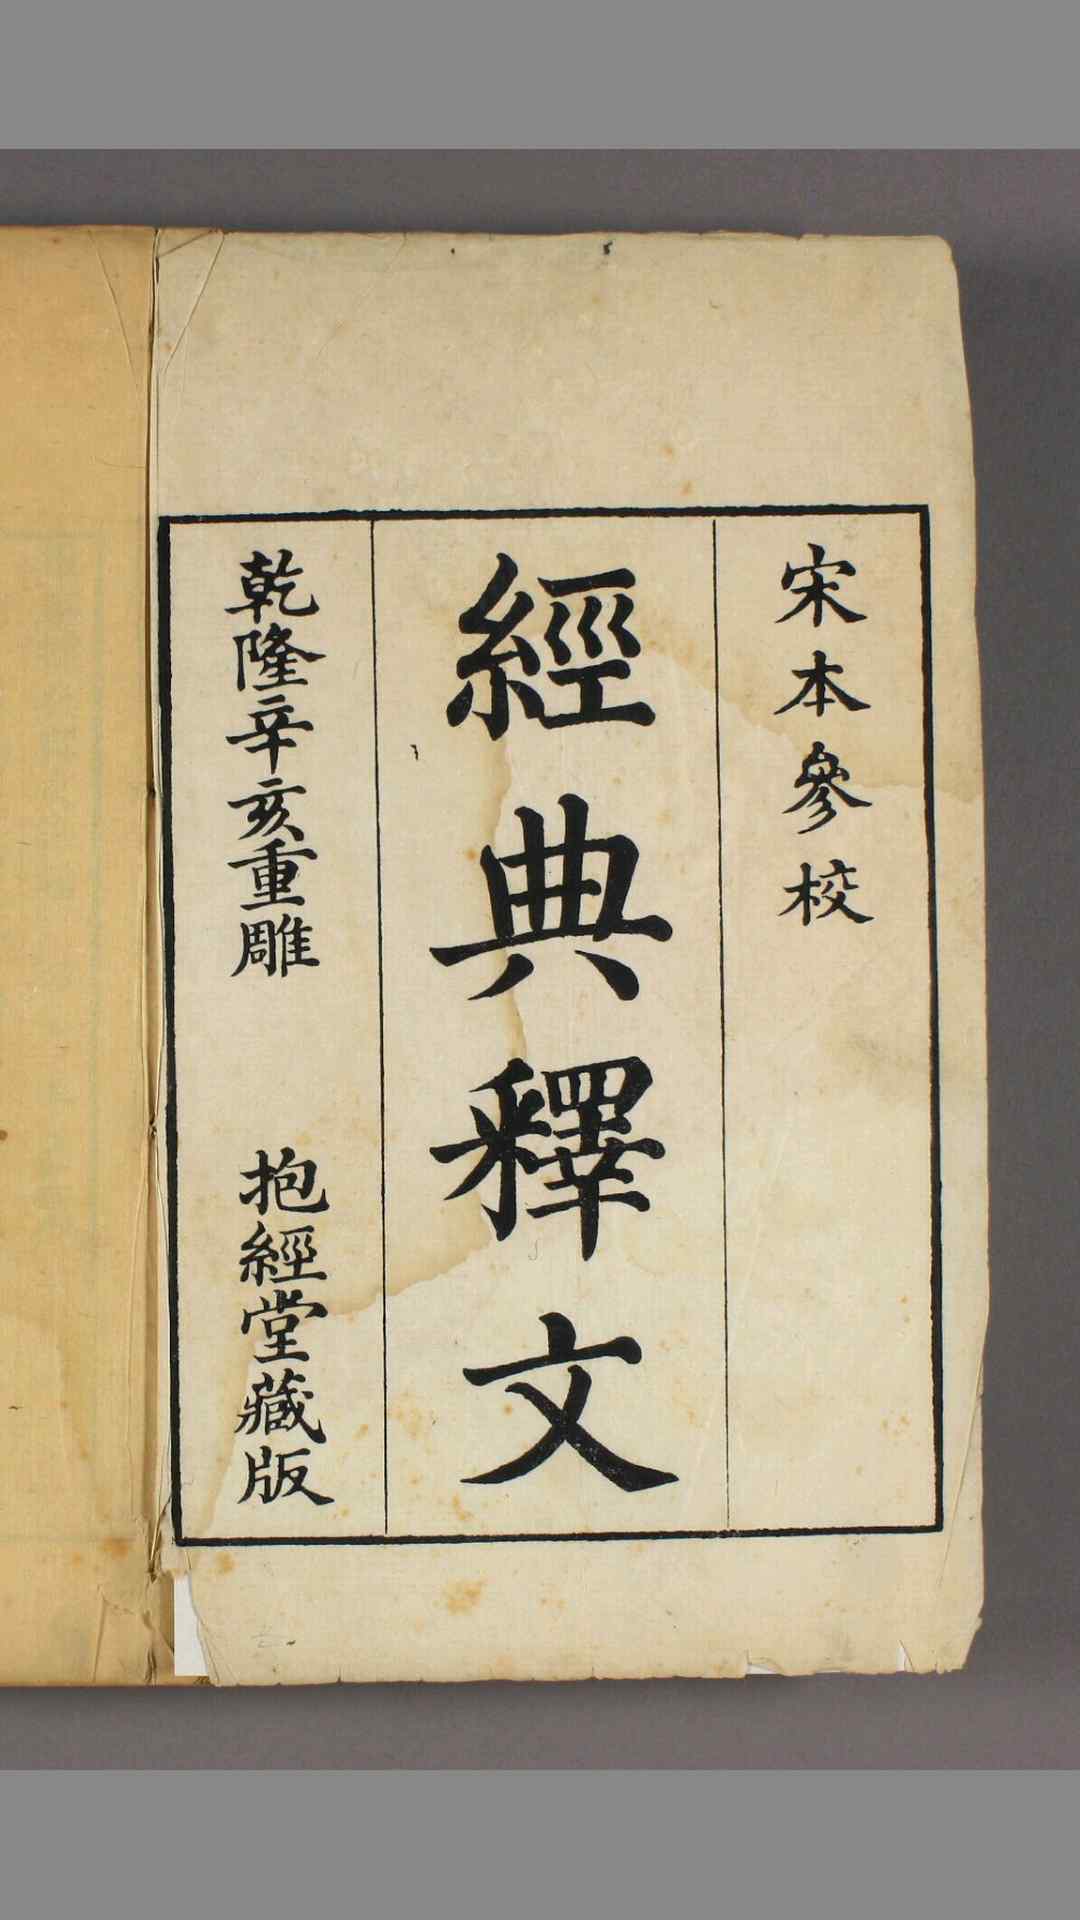 宋本參校
經典釋文
乾隆辛亥重雕
抱經堂藏版